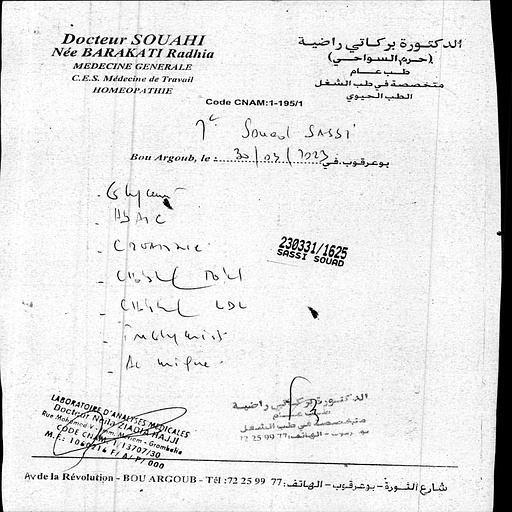 Docteur SOUAHI
Née BARAKATI Radhia
MEDECINE GENERALE
C.E.S. Médecine de Travail
HOMEOPATHIE
الدكتورة بركاتي راضية
(حرم السواحي)
طب عام
متخصصة في طب الشغل
الطب الحيوي
Code CNAM:1-195/1
Souad SASSI
Bou Argoub, le : 30/03/2023 بوعرقوب، في
- Glycémie
- HbA1C
- Créatinine
- Cholest Total
- Cholest LDL
- Triglycerides
- Ac urique
230331/1625
SASSI SOUAD
LABORATOIRE D'ANALYSES MEDICALES
Docteur Naila ZIADIA HAJJI
CODE CNAM: 1/13707/30
الدكتورة بركاتي راضية
طب عام
متخصصة في طب الشغل
الهاتف: 77 99 25 72
Av de la Révolution - BOU ARGOUB - Tél :72 25 99 77 شارع الثورة - بوعرقوب - الهاتف: